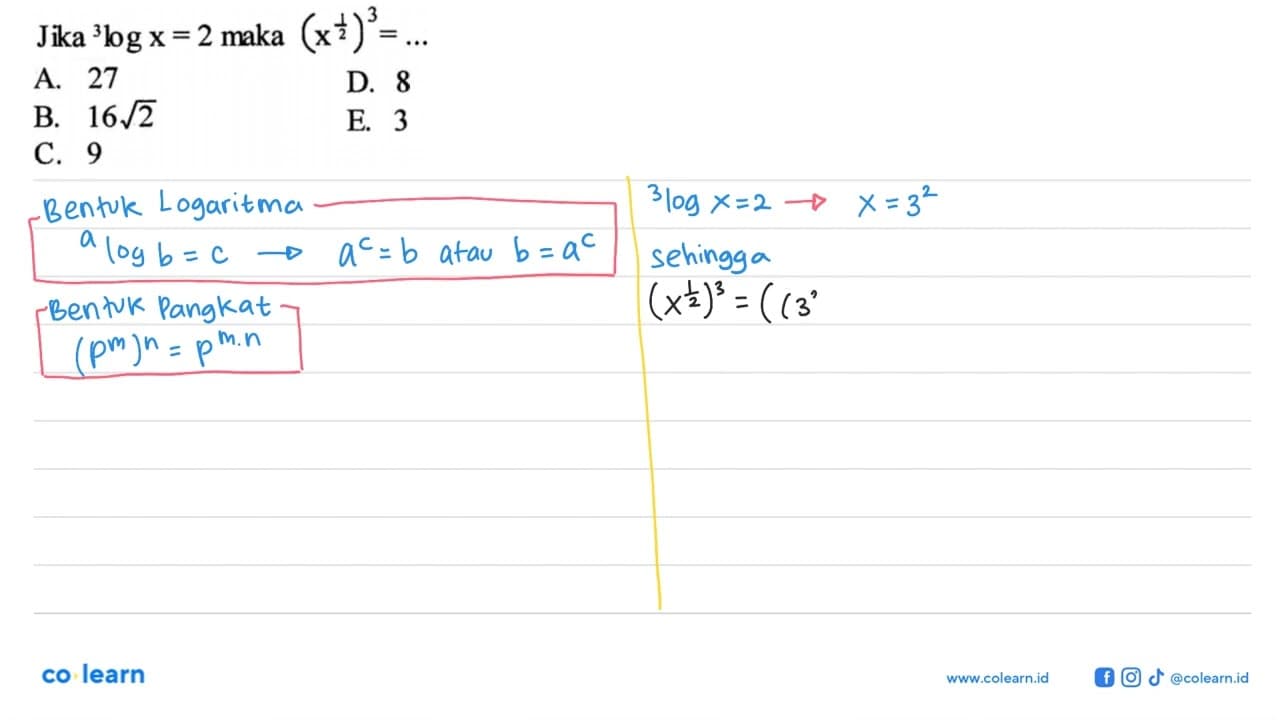 Jika ³log x = 2 maka (x^½)³ = ...
A. 27
B. 16√2
C. 9
D. 8
E. 3
Bentuk Logaritma
ᵃlog b = c → aᶜ = b atau b = aᶜ
Bentuk Pangkat
(pᵐ)ⁿ = p^m.n
³log x = 2 → x = 3²
sehingga
(x^½)³ = ((3
co learn
www.colearn.id
@colearn.id